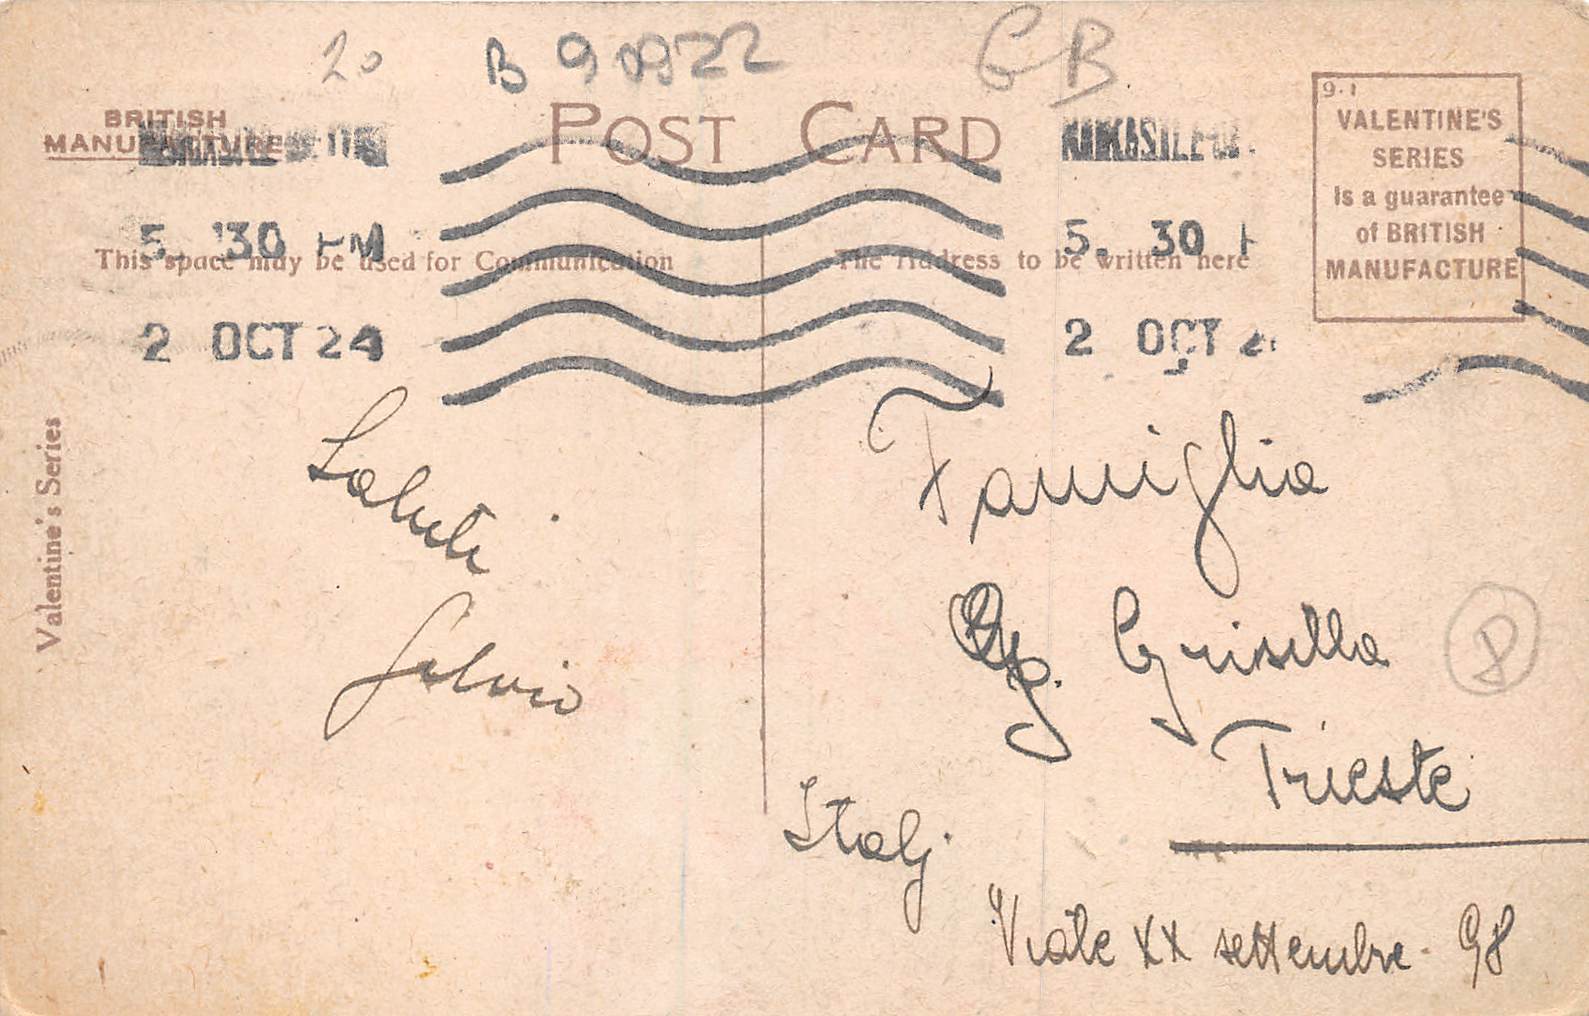 20 B 90922 GB
BRITISH
MANUFACTURE
POST CARD
9·1
VALENTINE'S
SERIES
Is a guarantee
of BRITISH
MANUFACTURE
5. 30 PM
5. 30
This space may be used for Communication
The Address to be written here
2 OCT 24
2 OCT 2
Valentine's Series
Saluti
Silvio
Famiglia
Grisilla
8
Trieste
Italy
Viale XX settembre 98